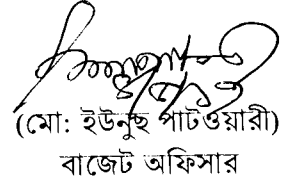 (মো: ইউনুছ পাটওয়ারী)
বাজেট অফিসার